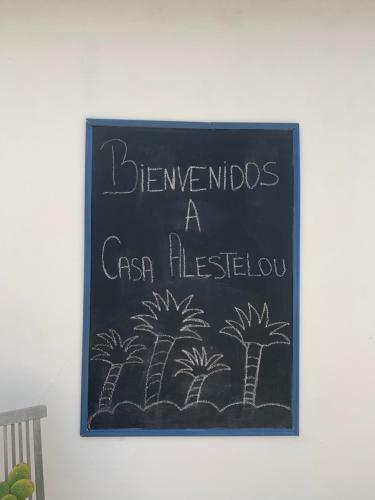 BIENVENIDOS
A
CASA ALESTELOU